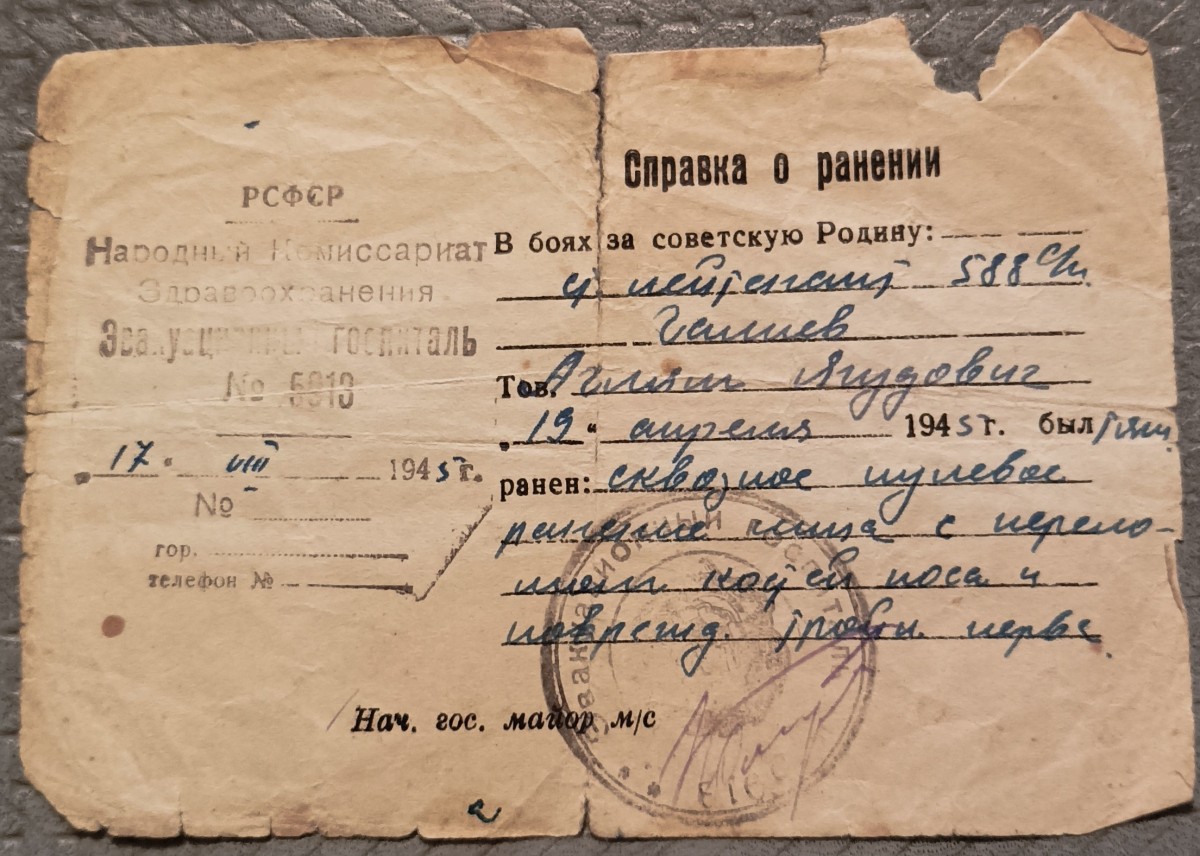 РСФСР
Народный Комиссариат
Здравоохранения
Эвакуационный госпиталь
№ 5913
„17“ VIII 1945 г.
№
гор.
телефон №
Справка о ранении
В боях за советскую Родину:
лейтенант 588 с/п.
Галиев
Тов. Ягудович
„19“ апреля 1945 г. был тяж.
ранен: сквозное пулевое
ранение лица с перело-
мом костей носа и
поврежд. тройн. нерва
Нач. гос. майор м/с
Эвакуационный госпиталь